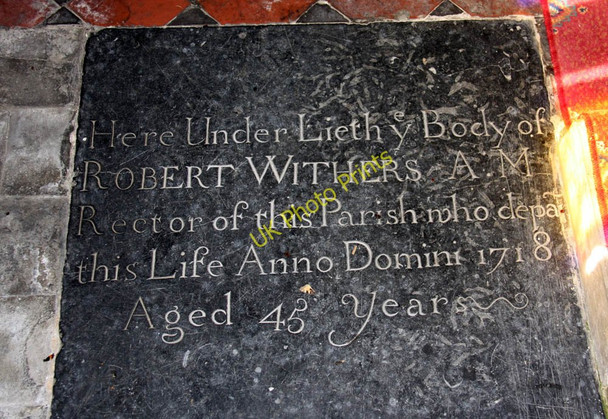 Here Under Lieth yᵉ Body of
ROBERT WITHERS A.M
Rector of this Parish who depaᵗ
this Life Anno Domini 1718
Aged 45 Years
UK Photo Prints